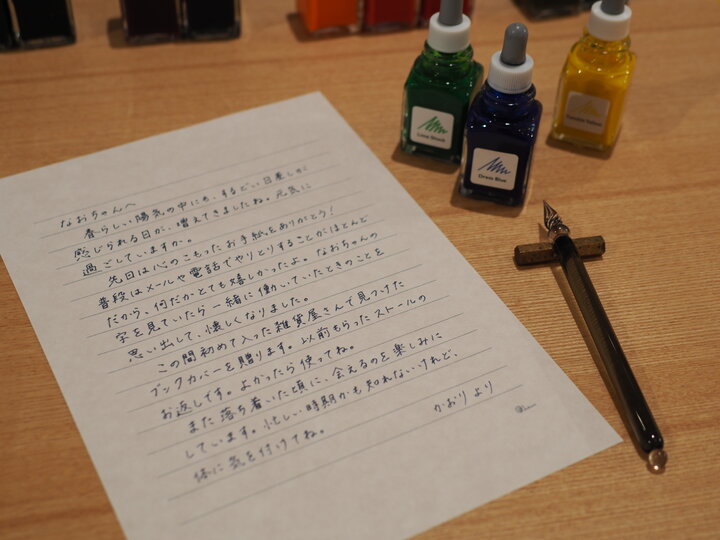 なおちゃんへ
春らしい陽気の中にも、するどい日差しが
感じられる日が、増えてきましたね。元気に
過ごしていますか。
先日は心のこもったお手紙をありがとう！
普段はメールや電話でやりとりすることがほとんど
だから、何だかとても嬉しかったよ。なおちゃんの
字を見ていたら一緒に働いていたときのことを
思い出して、懐しくなりました。
この間初めて入った雑貨屋さんで見つけた
ブックカバーを贈ります。以前もらったストールの
お返しです。よかったら使ってね。
また落ち着いた頃に、会えるのを楽しみに
しています。忙しい時期かも知れないけれど、
体に気を付けてね。
かおりより
Dress Blue
Yellow